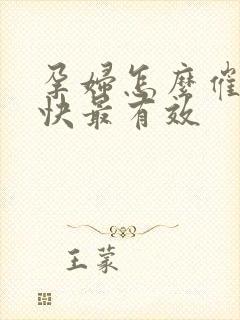 孕婦怎麽催
快最有效
王蒙